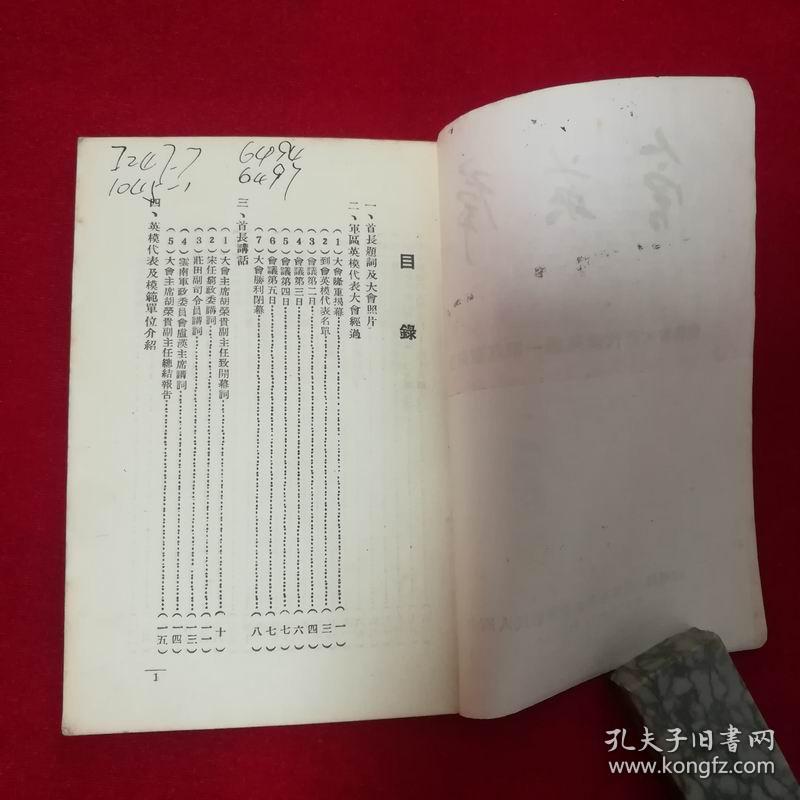 I247-7
1045-1
6494
6497
目錄
一、首長題詞及大會照片
二、軍區英模代表大會經過
(1)大會隆重揭幕……(一)
(2)到會英模代表名單……(三)
(3)會議第二日……(四)
(4)會議第三日……(六)
(5)會議第四日……(七)
(6)會議第五日……(七)
(7)大會勝利閉幕……(八)
三、首長講話
(1)大會主席胡榮貴副主任致開幕詞……(十)
(2)宋任窮政委講詞……(一一)
(3)莊田副司令員講詞……(一三)
(4)雲南軍政委員會盧漢主席講詞……(一四)
(5)大會主席胡榮貴副主任總結報告……(一五)
四、英模代表及模範單位介紹
1
孔夫子旧書网
www.kongfz.com